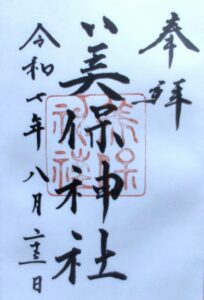 奉拝
美保神社
美保神社
令和七年八月十三日